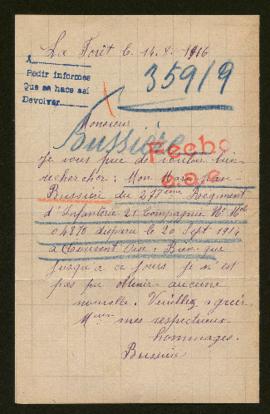 La Forêt le 14.8.1916
A
Pedir informes
Que se hace así
Devolver
35919
Monsieur
Bussière
Fecho
Je vous prie de vouloir bien
rechercher : Mon Mari
Bussière du 278ème Régiment
d'Infanterie 21 Compagnie No Mle
04270 disparu le 20 Sept 1914
à Oise. Bien que
jusqu'à ce jour je n'est
pas pu obtenir aucune
nouvelle. Veuillez agréer
mes respectueux
hommages.
Bussière